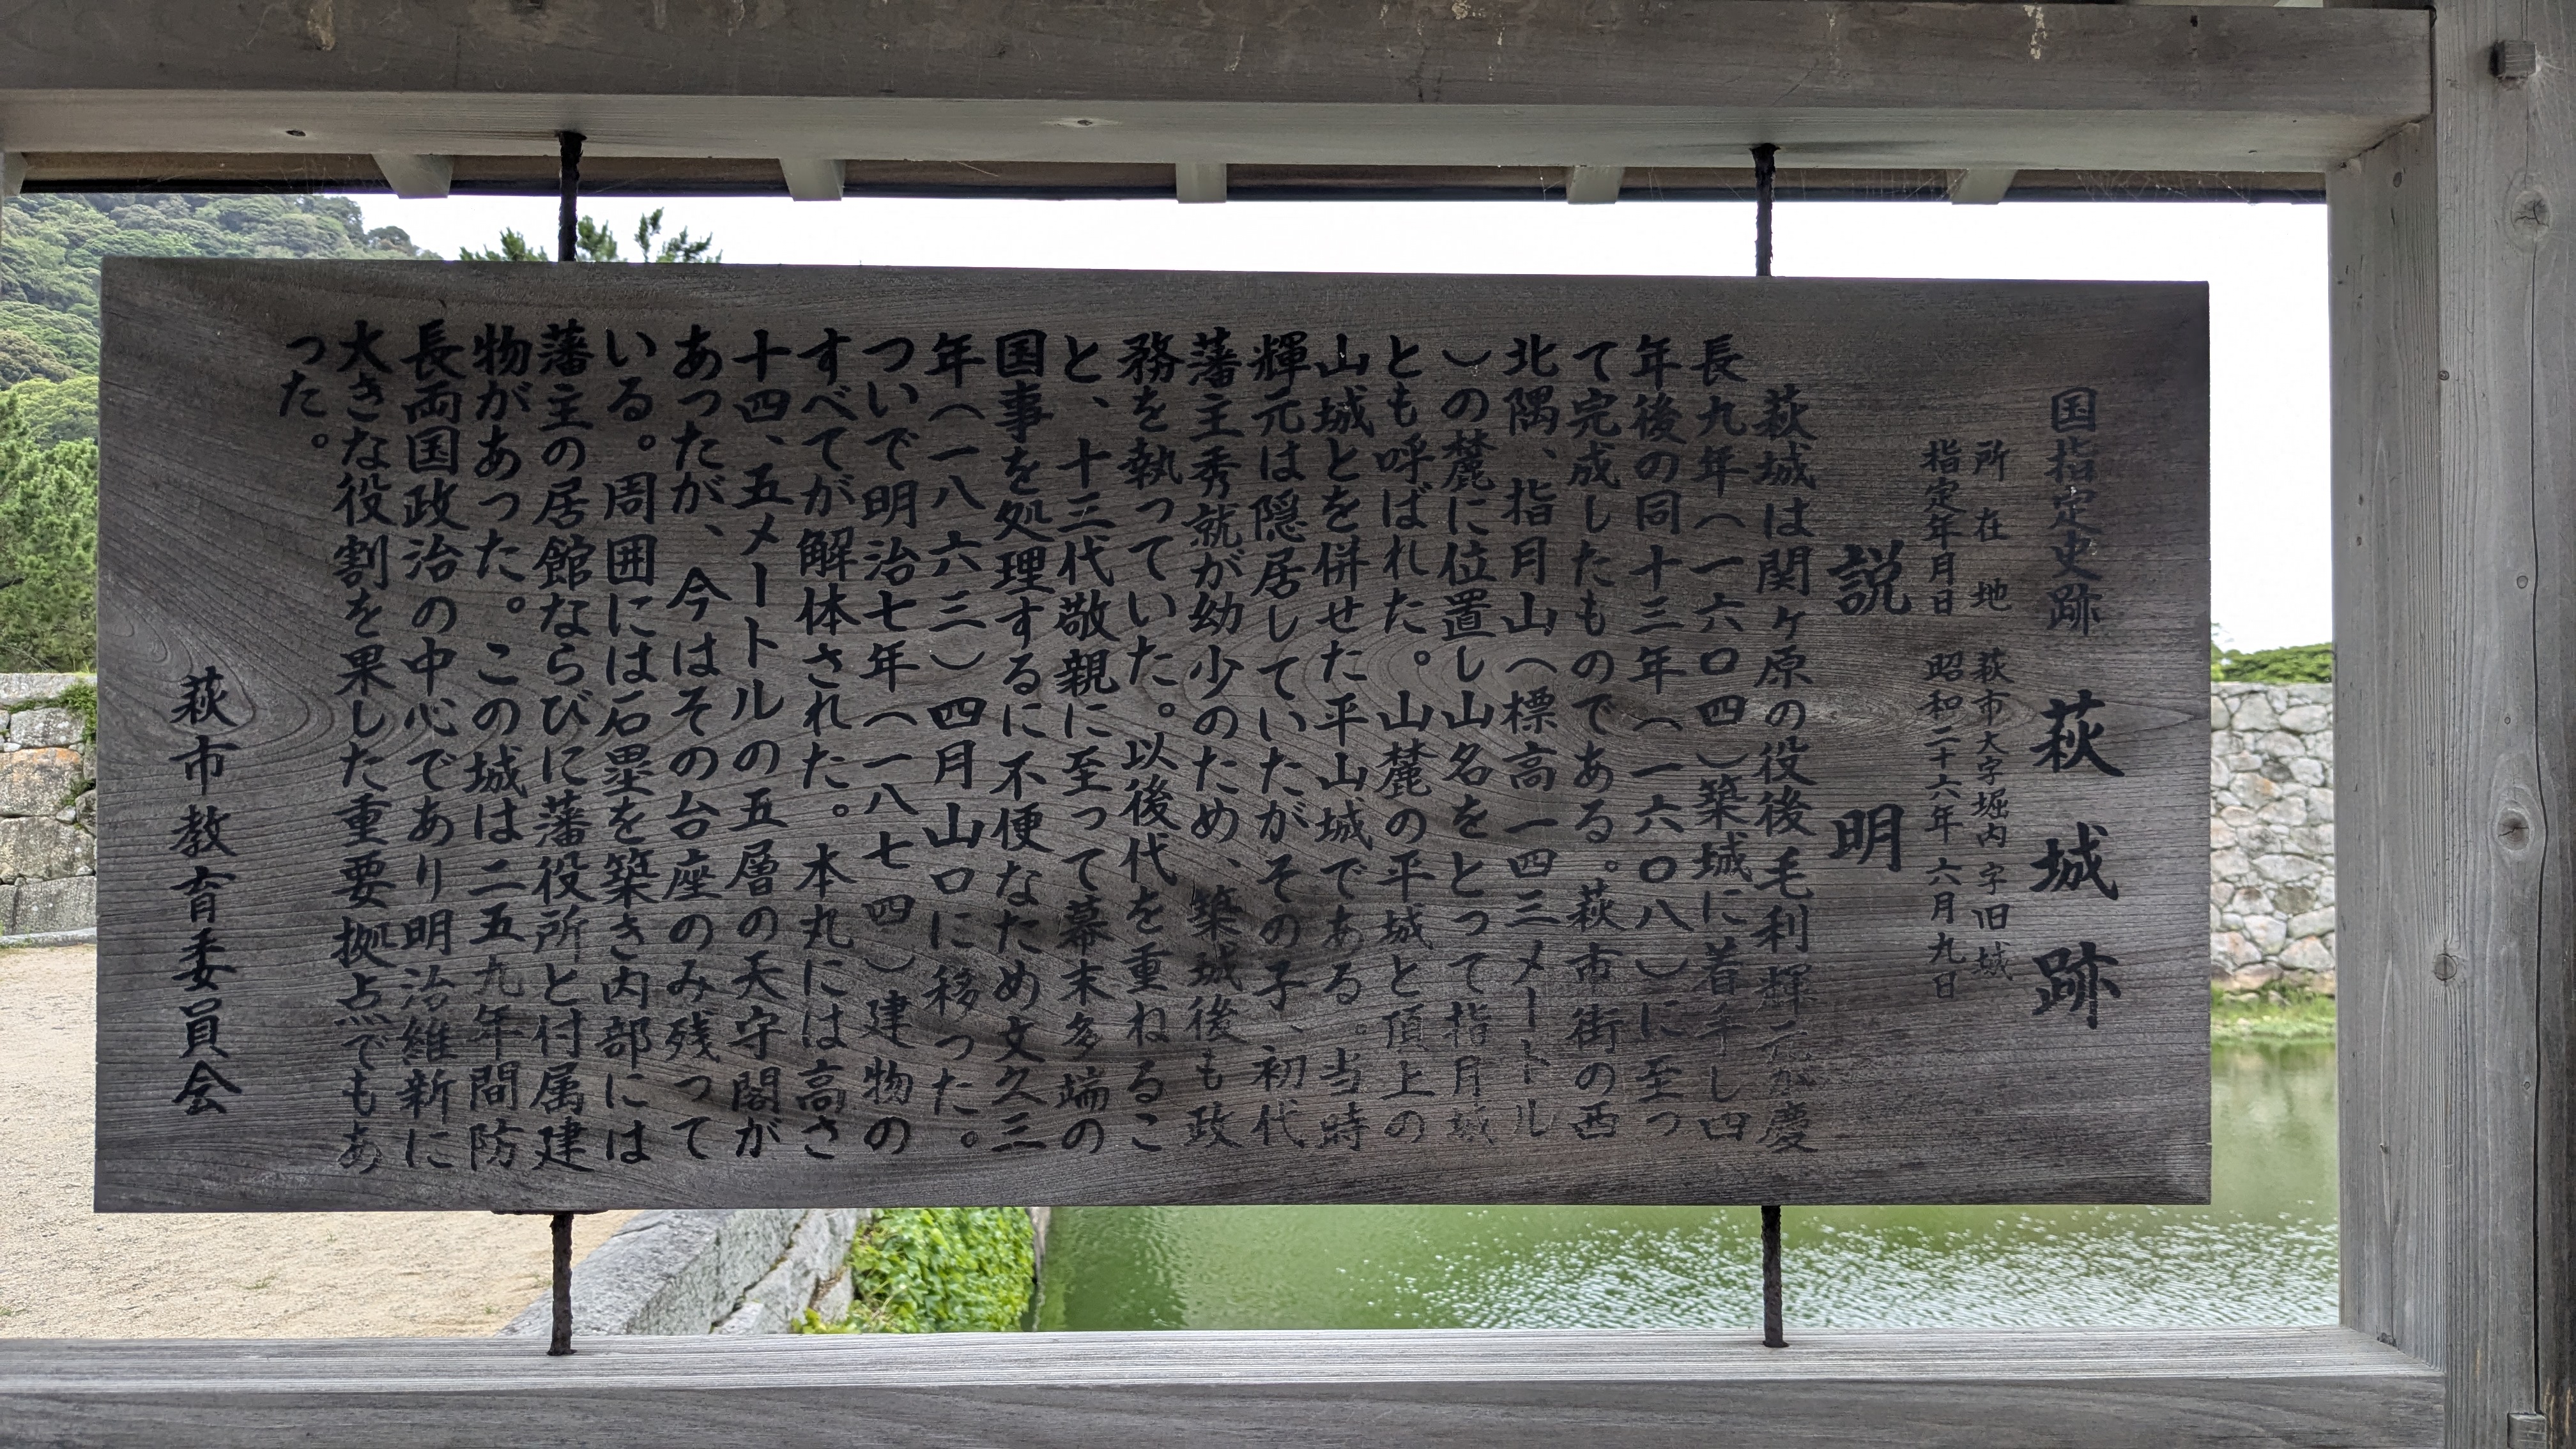 国指定史跡 萩城跡
所在地 萩市大字堀内字旧城
指定年月日 昭和二十六年六月九日
説明
萩城は関ヶ原の役後毛利輝元が慶
長九年(一六〇四)築城に着手し四
年後の同十三年(一六〇八)に至っ
て完成したものである。萩市街の西
北隅、指月山(標高一四三メートル
)の麓に位置し山名をとって指月城
とも呼ばれた。山麓の平城と頂上の
山城とを併せた平山城である。当時
輝元は隠居していたがその子、初代
藩主秀就が幼少のため、築城後も政
務を執っていた。以後代を重ねるこ
と、十三代敬親に至って幕末多端の
国事を処理するに不便なため文久三
年(一八六三)四月山口に移った。
ついで明治七年(一八七四)建物の
すべてが解体された。本丸には高さ
十四、五メートルの五層の天守閣が
あったが、今はその台座のみ残って
いる。周囲には石塁を築き内部には
藩主の居館ならびに藩役所と付属建
物があった。この城は二五九年間防
長両国政治の中心であり明治維新に
大きな役割を果した重要拠点でもあ
った。
萩市教育委員会